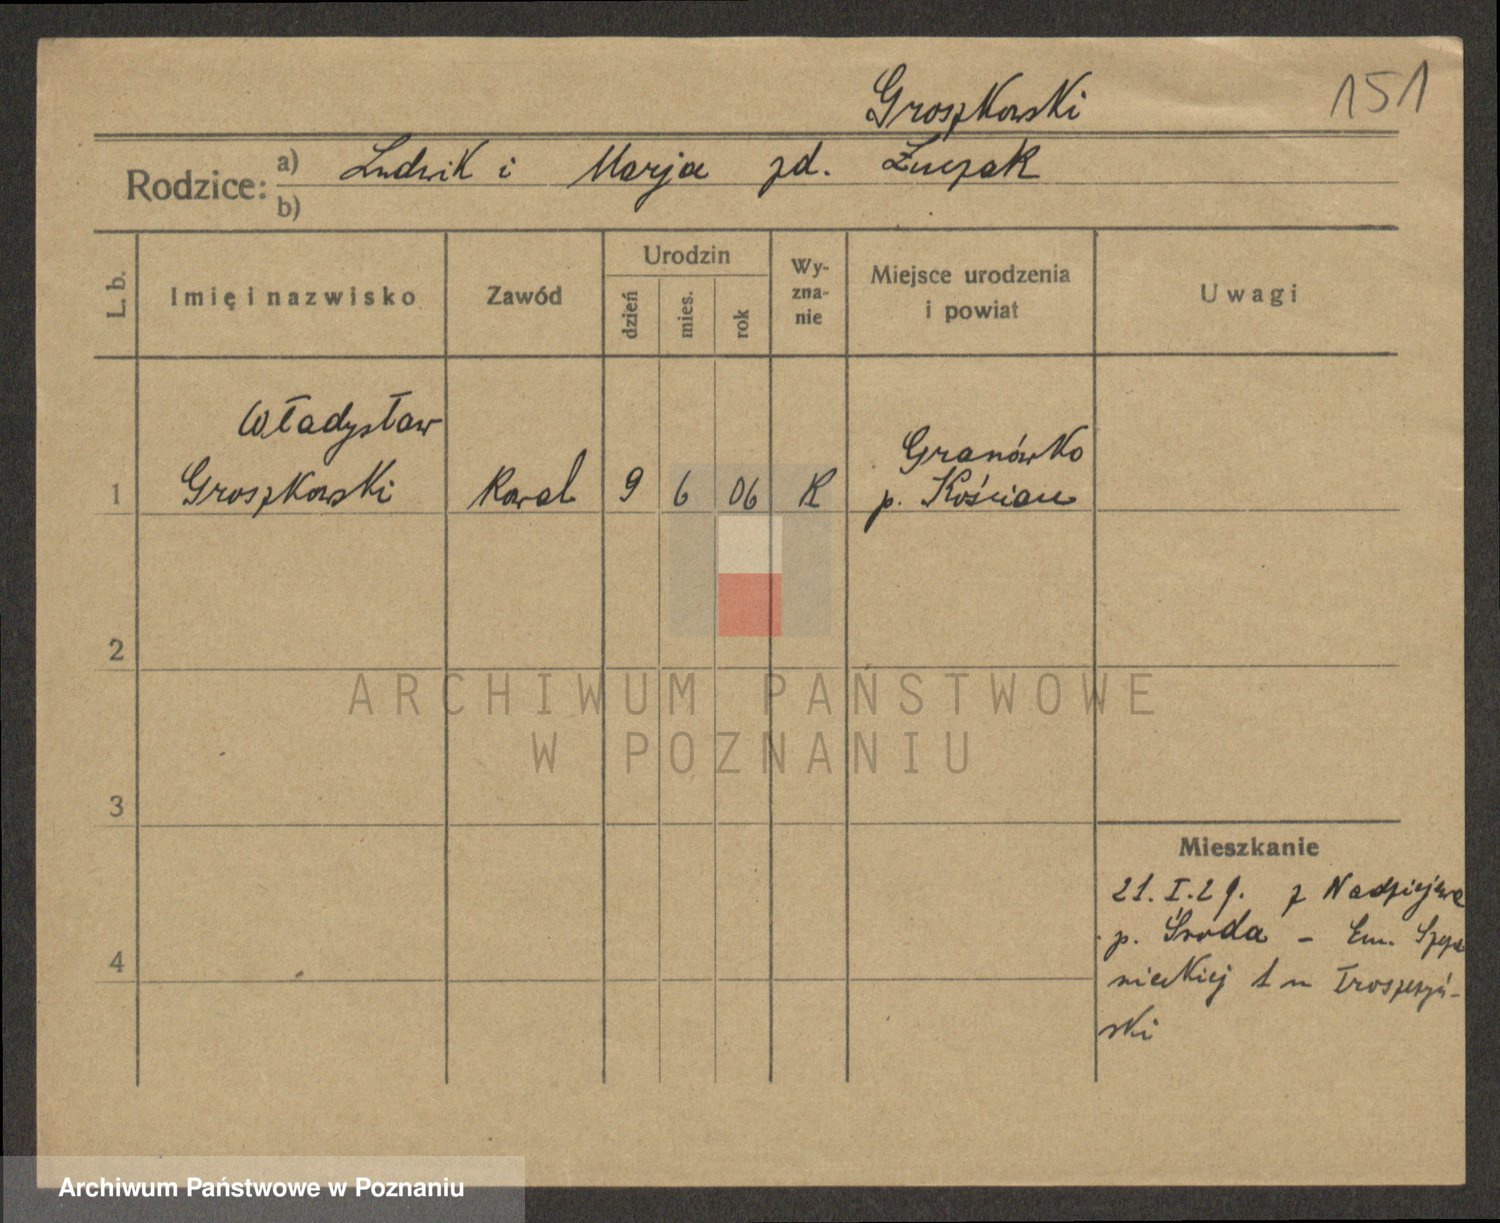 Groszkowski
151
Rodzice: a) Ludwik i Marja zd. Łuczak
b)
L. b.
Imię i nazwisko
Zawód
Urodzin
dzień
mies.
rok
Wy-
zna-
nie
Miejsce urodzenia
i powiat
Uwagi
Władysław
1 Groszkowski Kowal 9 6 06 K Granówko
p. Kościan
2
3
4
ARCHIWUM PAŃSTWOWE
W POZNANIU
Mieszkanie
21. I. 29. z Nadziejewa
p. Środa - Em. Szcza
nieckiej 1 m
ski
Archiwum Państwowe w Poznaniu